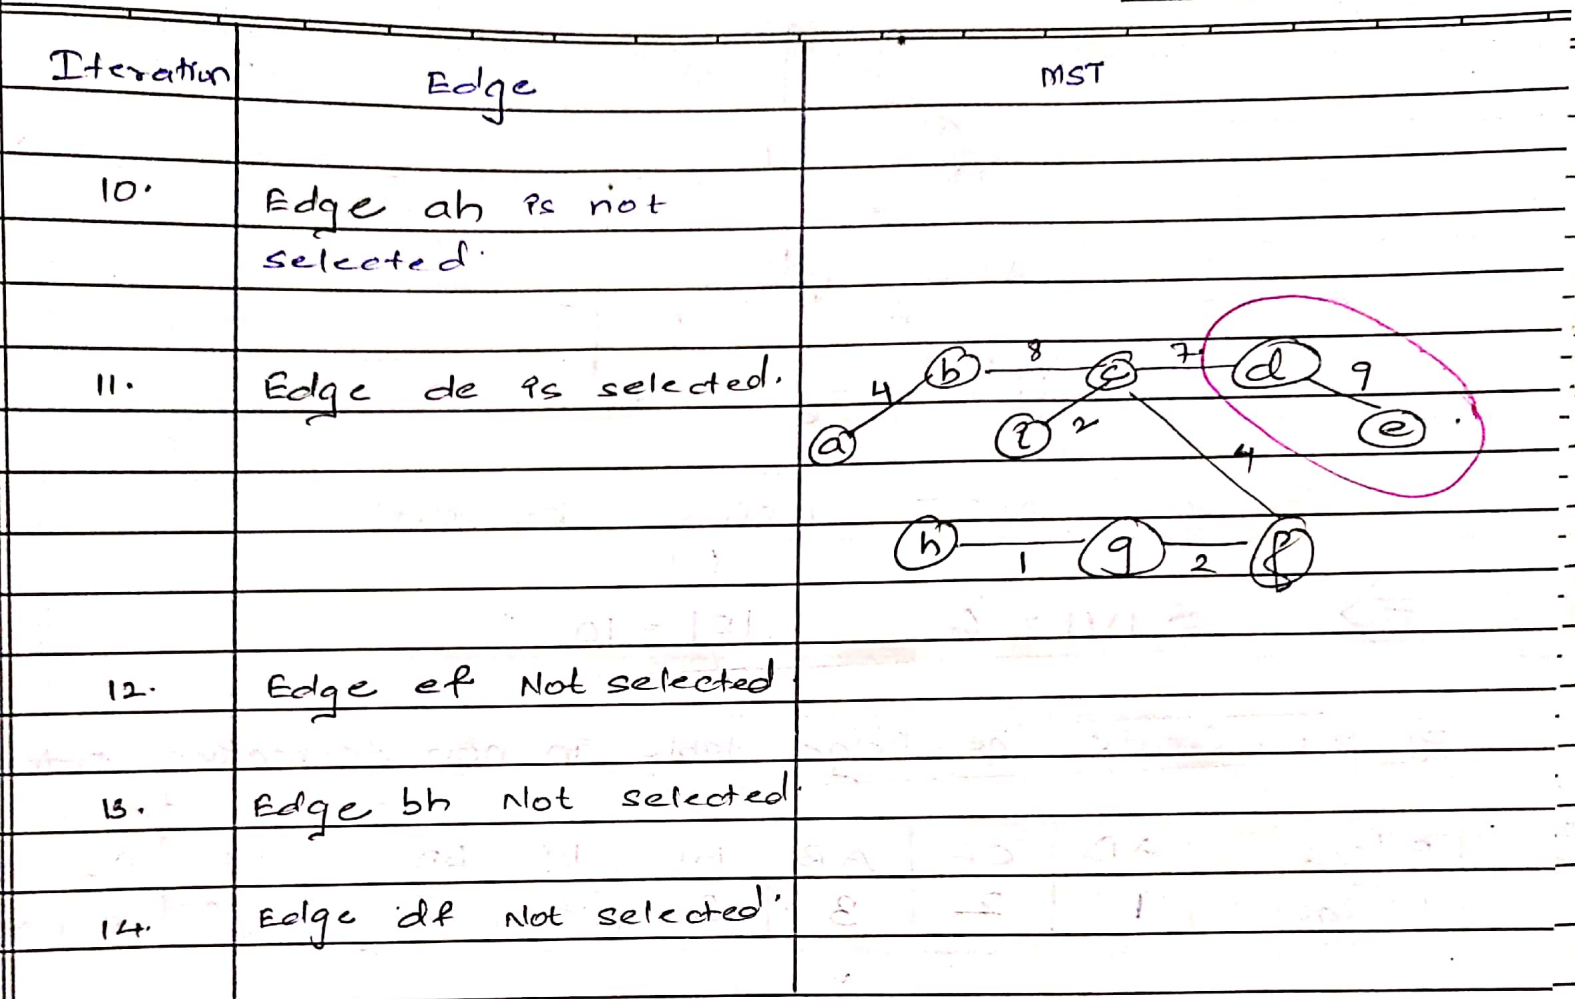 Iteration Edge MST
10. Edge ah is not
selected.
11. Edge de is selected.
b 8 c 7 d 9
4 a i 2 e
4
h 1 g 2 f
12. Edge ef Not selected
13. Edge bh Not selected
14. Edge df Not selected.